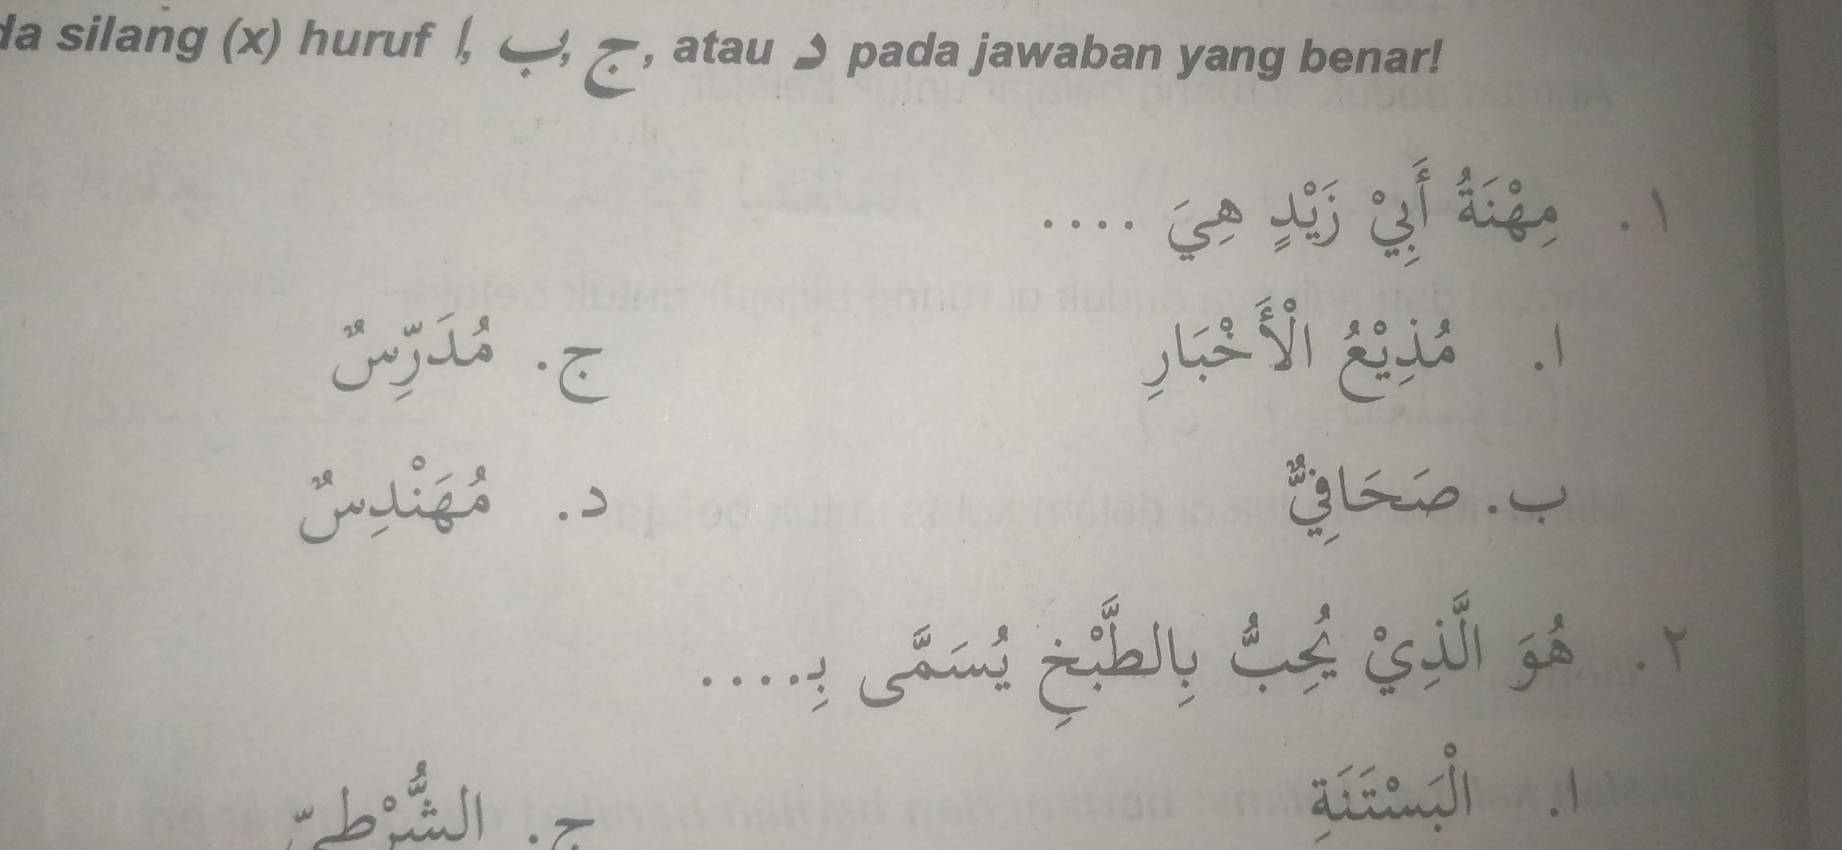 da silang (x) huruf ا, ب, ج, atau د pada jawaban yang benar!
١. مِهْنَةُ أَبِيْ زَيْدٍ هِيَ ....
ا. مُذِيْعُ الْأَخْبَارِ ج. مُدَرِّسٌ
ب. صَحَافِيٌّ د. مُهَنْدِسٌ
٢. هُوَ الَّذِيْ يُحِبُّ بِالطَّبْخِ يُسَمَّى بِ....
ا. الْبَسْتَنَةِ ج. الشُّرْطِيِّ